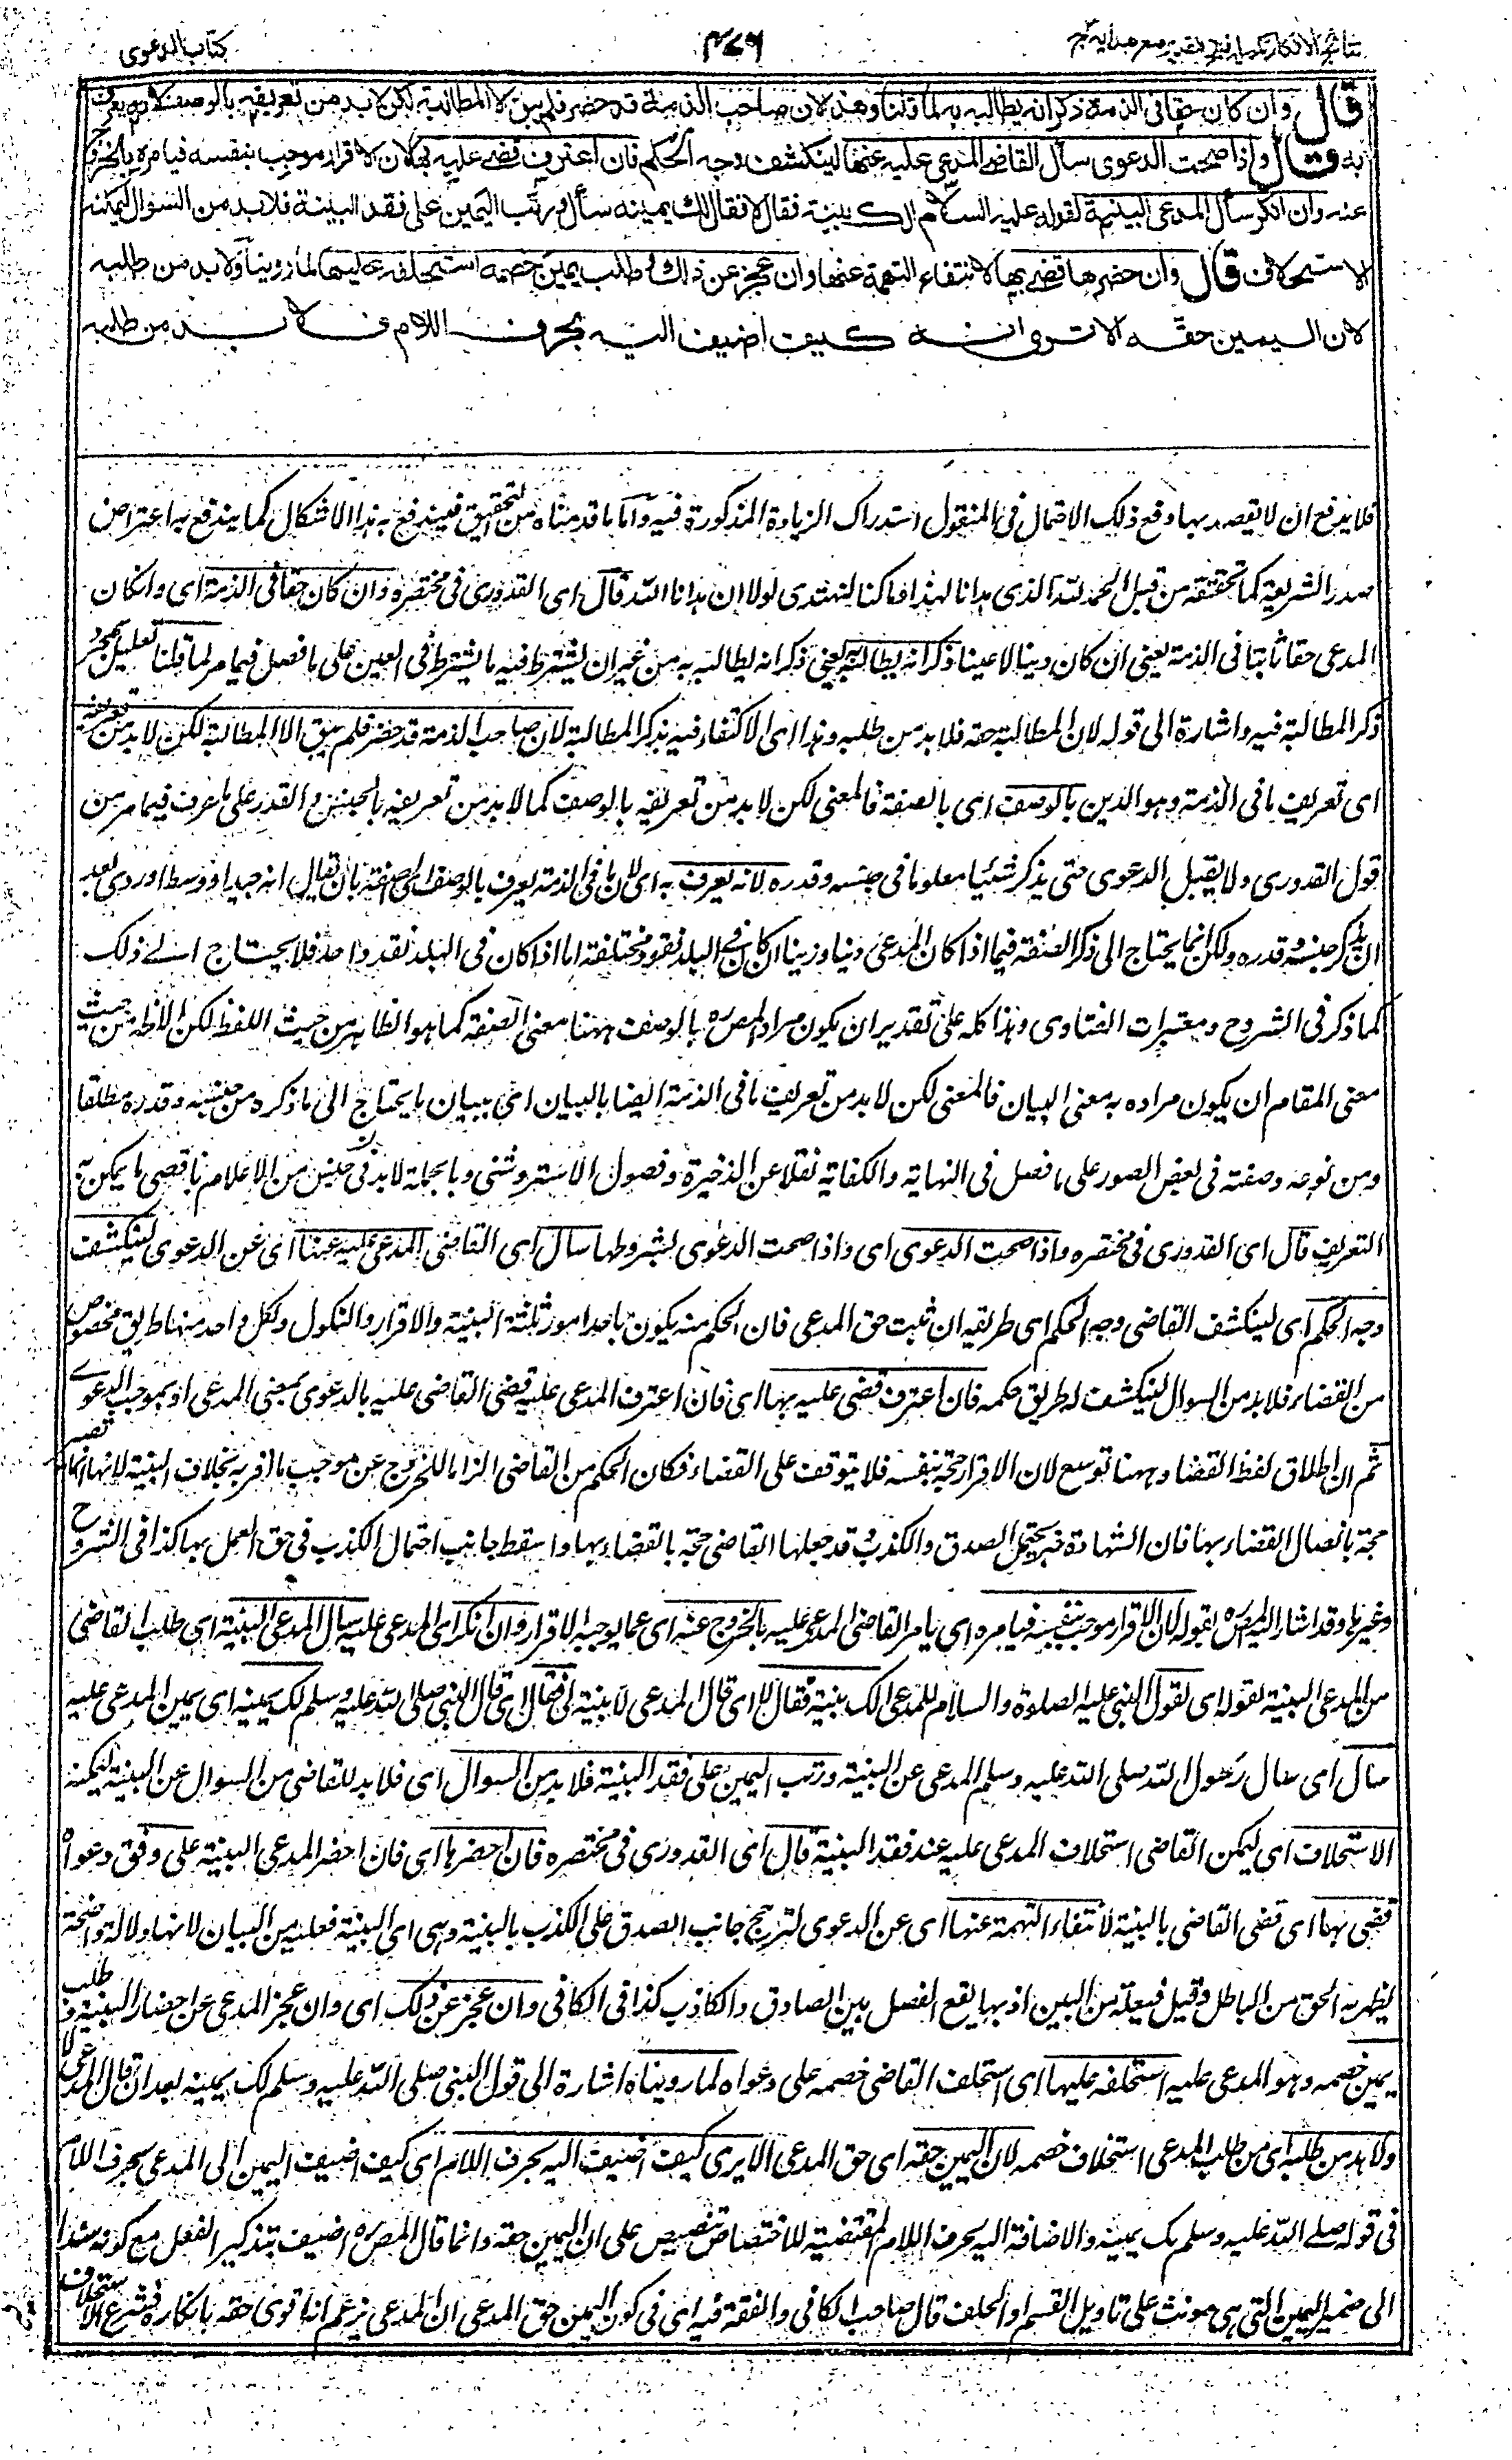 نتائج الافكار تكملة فتح القدير مع هداية ج
كتاب الدعوى
قال وان كان حقا فى الذمة ذكر انه يطالبه به لما قلنا وهذا لان صاحب الذمة قد حضر فلم يبق الا المطالبة لكن لابد من تعريفه بالوصف لانه يعرف
به قال واذا صحت الدعوى سأل القاضى المدعى عليه عنها لينكشف وجه الحكم فان اعترف قضى عليه بها لان الاقرار موجب بنفسه فيأمره بالخروج
عنه وان انكر سأل المدعى البينة لقوله عليه السلام الك بينة فقال لا فقال لك يمينه سأل ورتب اليمين على فقد البينة فلابد من السؤال ليمكنه
الاستحلاف قال وان حضرها قضى بها لانتفاء التهمة عنها وان عجز عن ذلك وطلب يمين خصمه استحلفه عليها لما روينا ولابد من طلبه
لان اليمين حقه الا ترى انه كيف اضيف اليه بحرف اللام فلا بد من طلبه
فلا يندفع ان لا يقصد بها دفع ذلك الاحتمال فى المنقول استدراك الزيادة المذكورة فيه واما ما قدمناه من التحقيق فيندفع به هذا الاشكال كما يندفع به اعتراض
صدر الشريعة كما تحققته من قبل الحمد لله الذى هدانا لهذا وما كنا لنهتدى لولا ان هدانا الله قال اى القدورى فى مختصره وان كان حقا فى الذمة اى وان كان
المدعى حقا ثابتا فى الذمة يعنى ان كان دينا لا عينا ذكر انه يطالبه به يعنى ذكر انه يطالبه به من غير ان يشترط فيه ما يشترط فى العين على ما فصل فيما مر لما قلنا تعليل لمجرد
ذكر المطالبة فيه واشارة الى قوله لان المطالبة حقه فلابد من طلبه وهذا اى الاكتفاء فيه بذكر المطالبة لان صاحب الذمة قد حضر فلم يبق الا المطالبة لكن لابد من تعريفه
اى تعريف ما فى الذمة وهو الدين بالوصف اى بالصفة فالمعنى لكن لابد من تعريفه بالوصف كما لابد من تعريفه بالجنس والقدر على ما عرف فيما مر من
قول القدورى ولا يقبل الدعوى حتى يذكر شيئا معلوما فى جنسه وقدره لانه يعرف به اى لان ما فى الذمة يعرف بالوصف اى الصفة بان يقال انه جيد او وسط او ردى بعد
ان يذكر جنسه وقدره ولكن انما يحتاج الى ذكر الصفة فيما اذا كان المدعى دينا وزنيا ان كان فى البلد نقود مختلفة اما اذا كان فى البلد نقد واحد فلا يحتاج الى ذلك
كما ذكر فى الشروح ومعتبرات الفتاوى وهذا كله على تقدير ان يكون مراد المصره بالوصف ههنا معنى الصفة كما هو الظاهر من حيث اللفظ لكن الاظهر من حيث
معنى المقام ان يكون مراده به معنى البيان فالمعنى لكن لابد من تعريف ما فى الذمة ايضا بالبيان اى ببيان ما يحتاج الى ما ذكره من جنسه وقدره مطلقا
ومن نوعه وصفته فى بعض الصور على ما فصل فى النهاية والكفاية نقلا عن الذخيرة وفصول الاستروشنى وبالجملة لابد فى كل جنس من الاعلام باقصى ما يمكن به
التعريف قال اى القدورى فى مختصره واذا صحت الدعوى اى واذا صحت الدعوى بشروطها سال اى القاضى المدعى عليه عنها اى عن الدعوى لينكشف
وجه الحكم اى لينكشف القاضى وجه الحكم اى طريقه ان ثبت حق المدعى فان الحكم منه يكون باحد امور ثلثة البينة والاقرار والنكول ولكل واحد منها طريق مخصوص
من القضاء فلابد من السوال لينكشف له طريق حكمه فان اعترف قضى عليه بها اى فان اعترف المدعى عليه قضى القاضى عليه بالدعوى بمعنى المدعى او بموجب الدعوے
ثم ان اطلاق لفظ القضاء وههنا توسع لان الاقرار حجة بنفسه فلا يتوقف على القضاء فكان الحكم من القاضى الزاما للخروج عن موجب ما اقر به بخلاف البينة لانها انما تصير
حجة باتصال القضاء بها فان الشهادة خبر يحتمل الصدق والكذب وقد جعلها القاضى حجة بالقضاء بها واسقط جانب احتمال الكذب فى حق العمل بها كذا فى الشروح
وغيرها وقد اشار اليه المصره بقوله لان الاقرار موجب بنفسه فيامره اى يامر القاضى المدعى عليه بالخروج عنه اى عما يوجبه الاقرار وان انكر اى المدعى عليه سال المدعى البينة اى طلب القاضى
من المدعى البينة لقوله اى لقول النبى عليه الصلوة والسلام للمدعى الك بينة فقال لا اى قال المدعى لا بينة لى فقال اى قال النبى صلى الله عليه وسلم لك يمينه اى يمين المدعى عليه
سال اى سال رسول الله صلى الله عليه وسلم المدعى عن البينة ورتب اليمين على فقد البينة فلابد من السوال اى فلابد للقاضى من السوال عن البينة ليمكنه
الاستحلاف اى ليمكن القاضى استحلاف المدعى عليه عند فقد البينة قال اى القدورى فى مختصره فان احضرها اى فان احضر المدعى البينة على وفق دعواه
قضى بها اى قضى القاضى بالبينة لانتفاء التهمة عنها اى عن الدعوى لترجح جانب الصدق على الكذب بالبينة وهى اى البينة فعلية من البيان لانها دلالة واضحة
يظهر به الحق من الباطل وقيل فيعلة من البين اذ بها يقع الفصل بين الصادق والكاذب كذا فى الكافى وان عجز عن ذلك اى وان عجز المدعى عن احضار البينة وطلب
يمين خصمه وهو المدعى عليه استحلفه عليها اى استحلف القاضى خصمه على دعواه لما رويناه اشارة الى قول النبى صلى الله عليه وسلم لك يمينه بعد ان قال المدعى لا
ولابد من طلبه اى من طلب المدعى استحلاف خصمه لان اليمين حقه اى حق المدعى الا يرى كيف اضيف اليه بحرف اللام اى كيف اضيف اليمين الى المدعى بحرف اللام
فى قوله صلى الله عليه وسلم لك يمينه والاضافة اليه بحرف اللام المقتضية للاختصاص تنصيص على ان اليمين حقه وانما قال المصره اضيف بتذكير الفعل مع كونه مسندا
الى ضمير اليمين التى هى مونث على تاويل القسم او الحلف قال صاحب الكافى والفقه فيه اى فى كون اليمين حق المدعى ان المدعى يزعم انه اتوى حقه بانكاره فشرع الاستحلاف